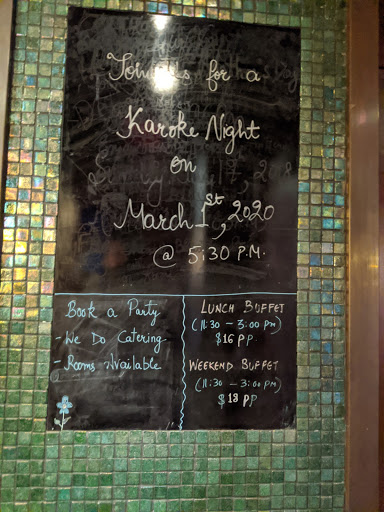 Join us for a
Karoke Night
on
March 1st, 2020
@ 5:30 P.M.
Book a Party
- We Do Catering
- Rooms Available
LUNCH BUFFET
(11:30 - 3:00 PM)
$16 PP
WEEKEND BUFFET
(11:30 - 3:00 PM)
$18 PP